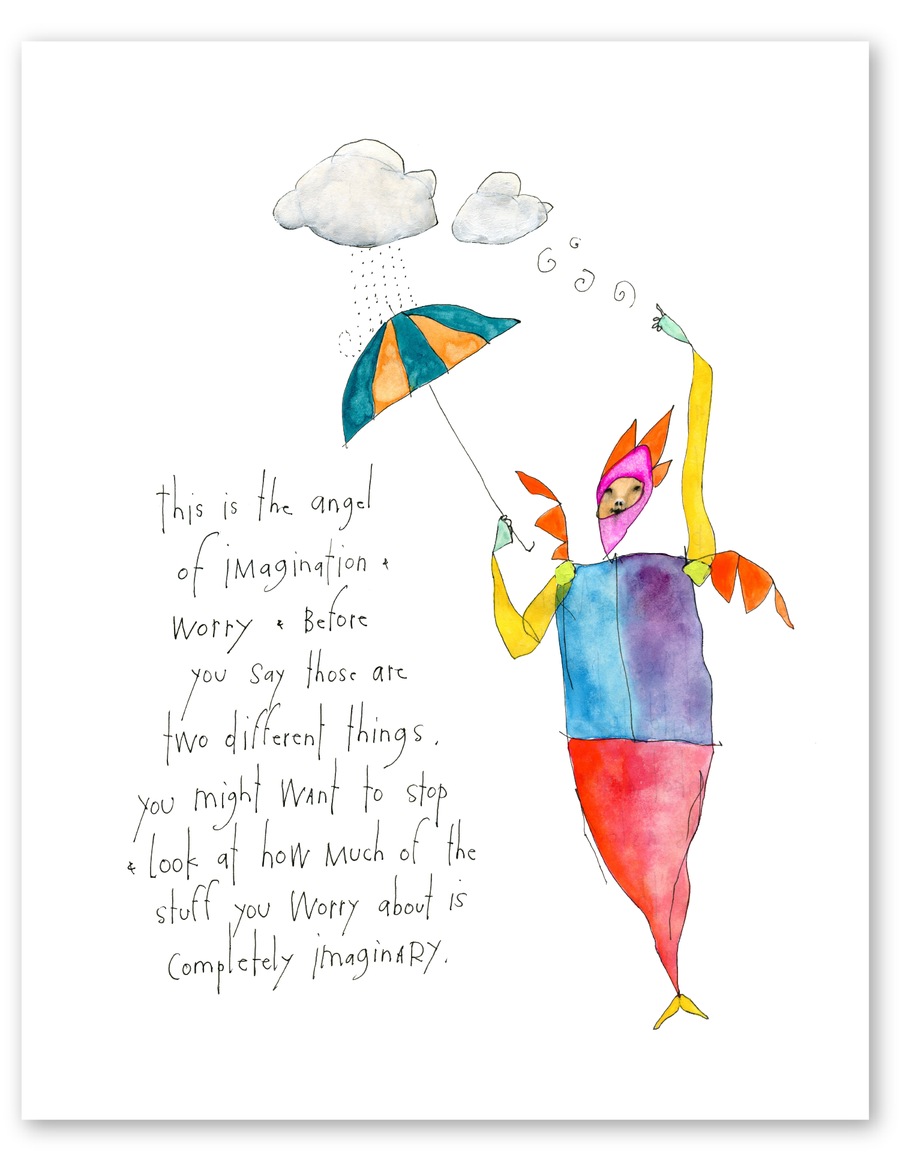 this is the angel
of iMagination &
Worry & Before
you say those are
two different things,
you might WANt to stop
& look at hoW Much of the
stuff you Worry about is
completely imaginARY.